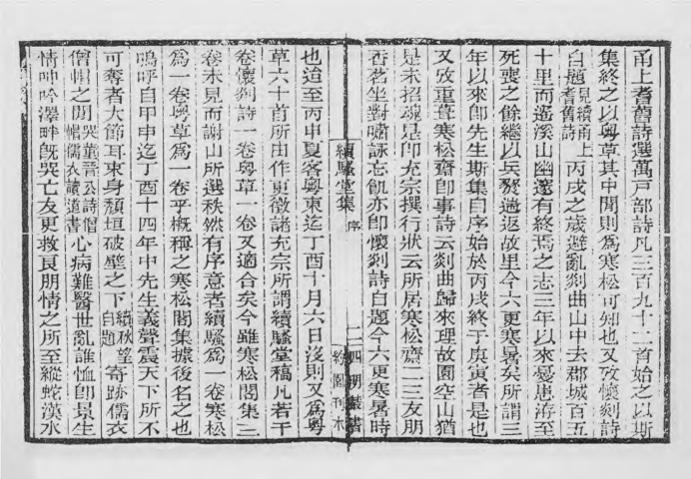 甬上耆舊詩選萬戶部詩凡三百九十二首始之以斯
集終之以粵草其中閒則爲寒松可知也又攷懷剡詩
自題見續甬上耆舊詩丙戌之歲避亂剡曲山中去郡城百五
十里而遙溪山幽邃有終焉之志三年以來憂患洊至
死喪之餘繼以兵發遁返故里今六更寒暑矣所謂三
年以來卽先生斯集自序始於丙戌終于庚寅者是也
又攷重葺寒松齋卽事詩云剡曲歸來理故園空山猶
是未招魂是卽充宗撰行狀云所居寒松齋二三友朋
香茗坐對嘯詠忘飢亦卽懷剡詩自題今六更寒暑時
續騷堂集 序 二 四明叢書 約園刊本
也迨至丙申夏客粵東迄丁酉十月六日沒則又爲粵
草六十首所由作更徵諸充宗所謂續騷堂稿凡若干
卷懷剡詩一卷粵草一卷又適合矣今雖寒松閣集三
卷未見而謝山所選秩然有序意者續騷爲一卷寒松
爲一卷粵草爲一卷乎概稱之寒松閣集據後名之也
嗚呼自甲申迄丁酉十四年中先生義聲震天下所不
可奪者大節耳束身頹垣破壁之下續秋望自題奇跡儒衣
僧帽之閒哭董晉公詩僧帽儒衣讀道書心病難醫世亂誰恤卽景生
情呻吟澤畔旣哭亡友更救良朋情之所至縱蛇漢水